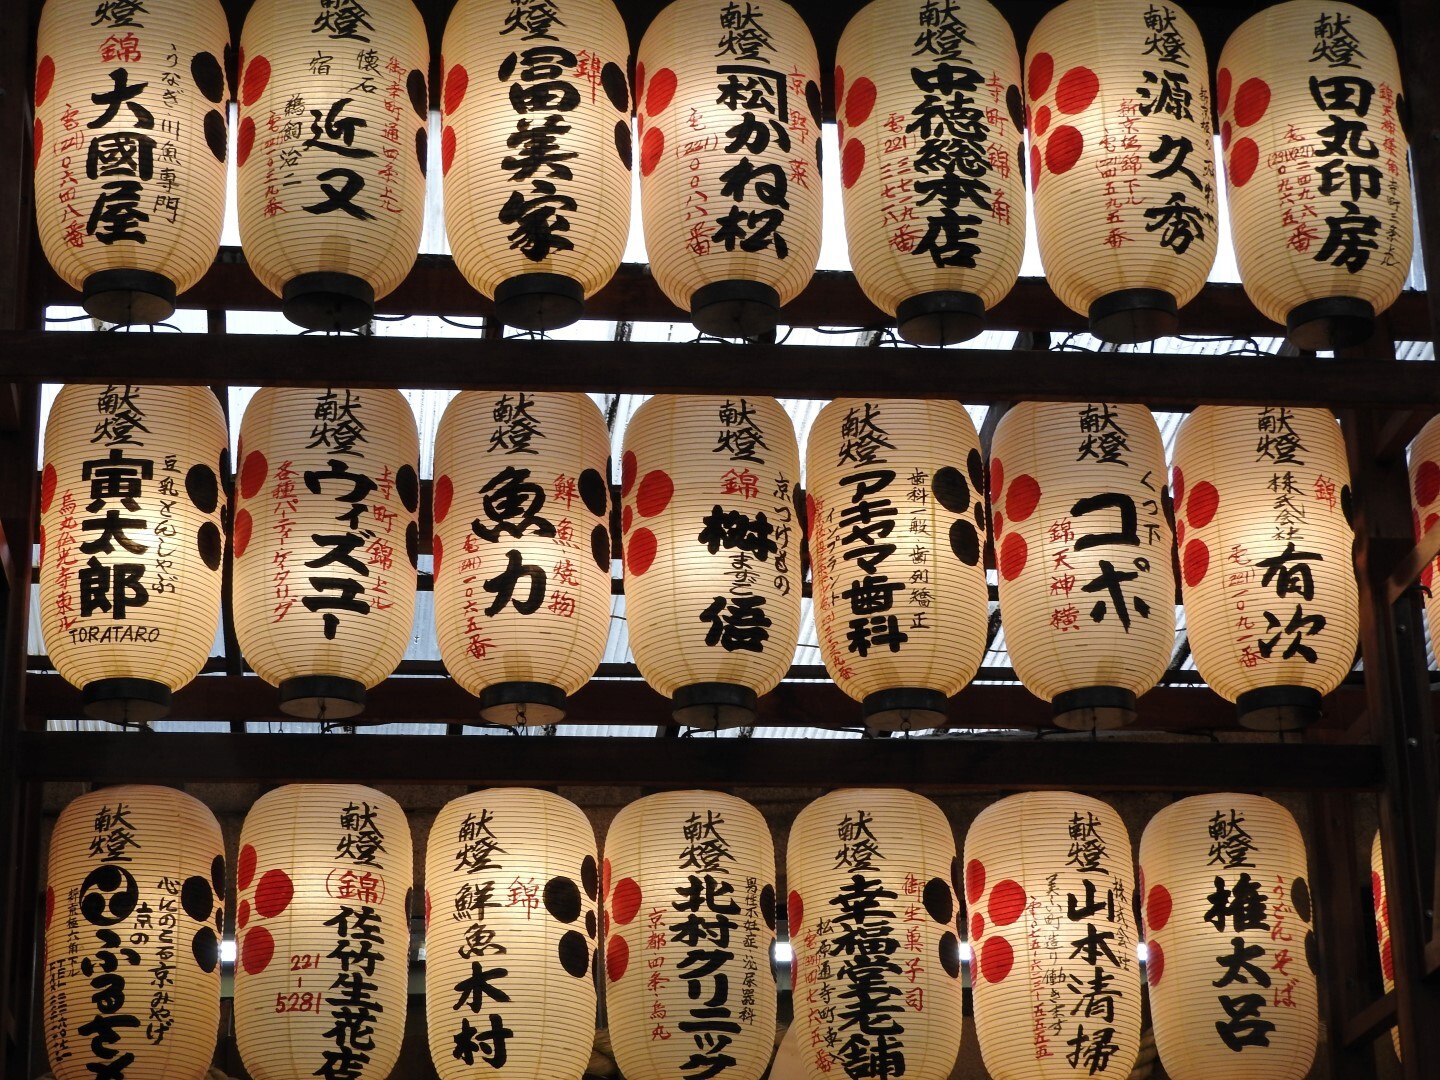 献燈
錦
大國屋
うなぎ川魚専門
電(221)〇六四八番
献燈
懐石
宿
近又
御幸町通四条上ル
鵜飼治二
献燈
錦
冨美家
献燈
京野菜
松
かね松
電(221)〇〇八八番
献燈
中徳総本店
寺町錦角
献燈
源久秀
献燈
田丸印房
献燈
寅太郎
豆乳とんしゃぶ
烏丸仏光寺東ル
TORATARO
献燈
ウィズユー
寺町錦上ル
各種パーティーケータリング
献燈
魚力
鮮魚焼物
電(221)〇六五番
献燈
錦
京つけもの
桝悟
ますご
献燈
アキヤマ歯科
歯科一般 歯列矯正
インプラント
献燈
くつ下
コポ
錦天神横
献燈
錦
株式会社
有次
電(221)一〇九一番
献燈
心にのこる京みやげ
京の
ふるさと
新京極六角下ル
献燈
(錦)
佐竹生花店
221-5281
献燈
錦
鮮魚木村
献燈
北村クリニック
男性不妊症・泌尿器科
京都四条・烏丸
献燈
御生菓子司
幸福堂老舗
松原通寺町東入
献燈
株式会社
山本清掃
美しい町造り働きます
献燈
うどんそば
権太呂